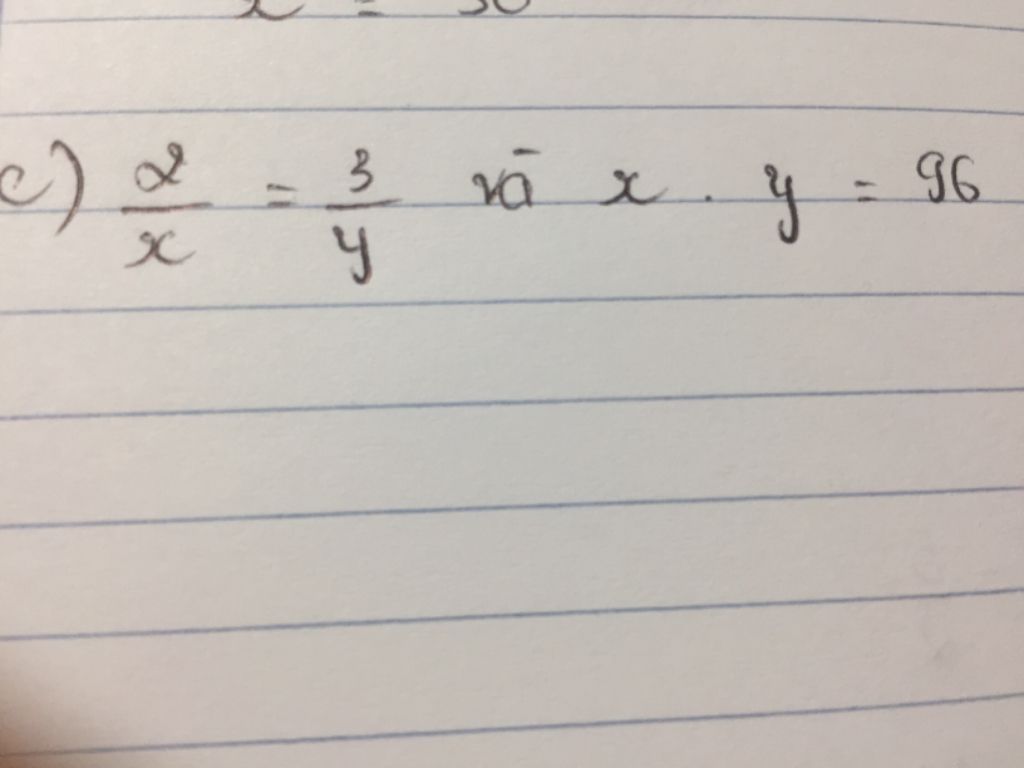 x = 30
c) 2/x = 3/y và x . y = 96